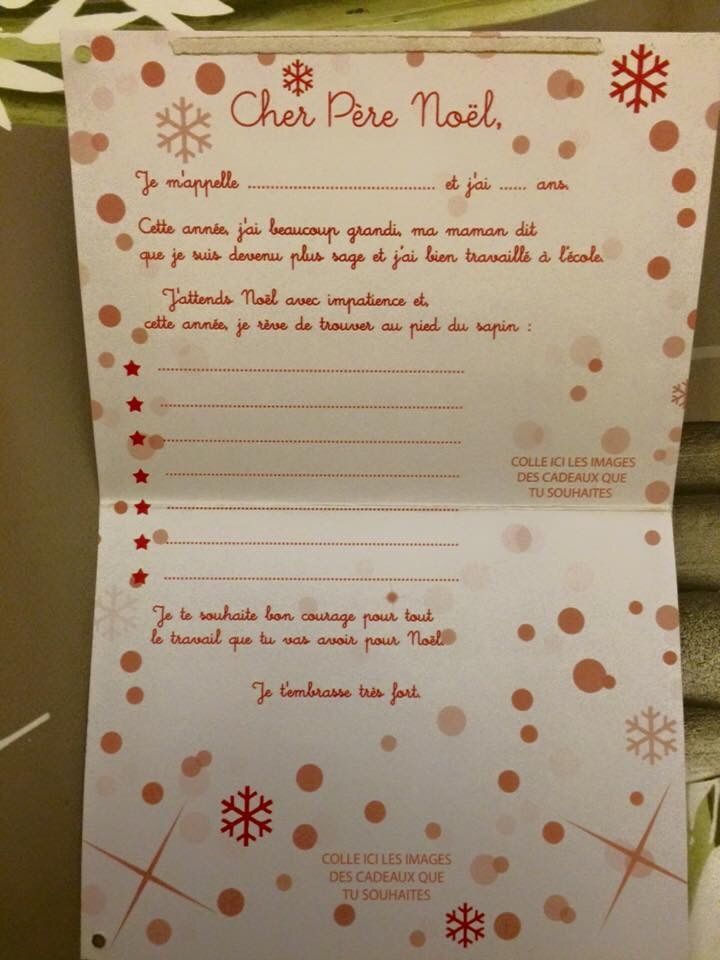 Cher Père Noël,
Je m'appelle ...................................... et j'ai ...... ans.
Cette année, j'ai beaucoup grandi, ma maman dit
que je suis devenu plus sage et j'ai bien travaillé à l'école.
J'attends Noël avec impatience et,
cette année, je rêve de trouver au pied du sapin :
COLLE ICI LES IMAGES
DES CADEAUX QUE
TU SOUHAITES
Je te souhaite bon courage pour tout
le travail que tu vas avoir pour Noël.
Je t'embrasse très fort.
COLLE ICI LES IMAGES
DES CADEAUX QUE
TU SOUHAITES